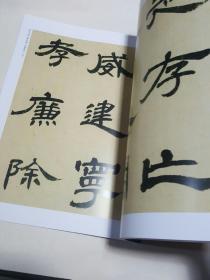 存亡
威建寧
孝廉除